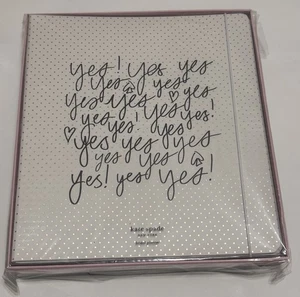 yes! yes yes
yes yes
yes yes yes
yes yes! yes!
yes yes yes
yes yes
yes! yes yes!
kate spade
NEW YORK